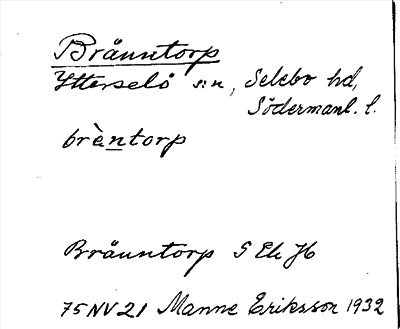 Bränntorp
Ytterselö s:n, Selebo hd,
Södermanl. l.
brèntorp
Bränntorp S Ek H
75 NV 21 Manne Eriksson 1932